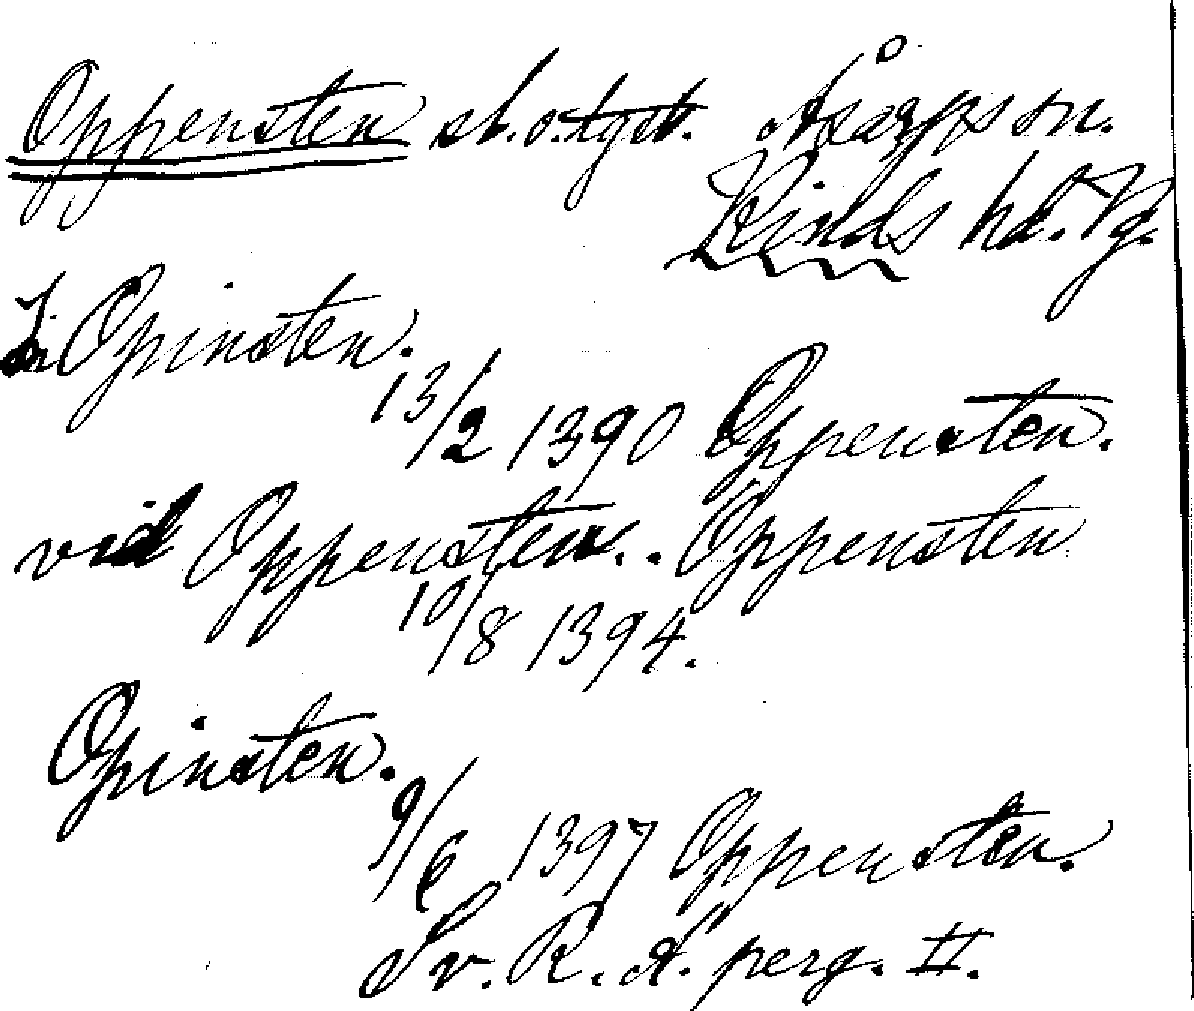 Oppensten sl. o. tgt. Åsarps sn.
Kinds hd. Vg.
I Opinsten.
13/2 1390 Oppensten.
vid Oppensten. Öppensten
10/8 1394.
Opinsten.
9/6 1397 Oppensten.
Sv. R. A. perg. II.